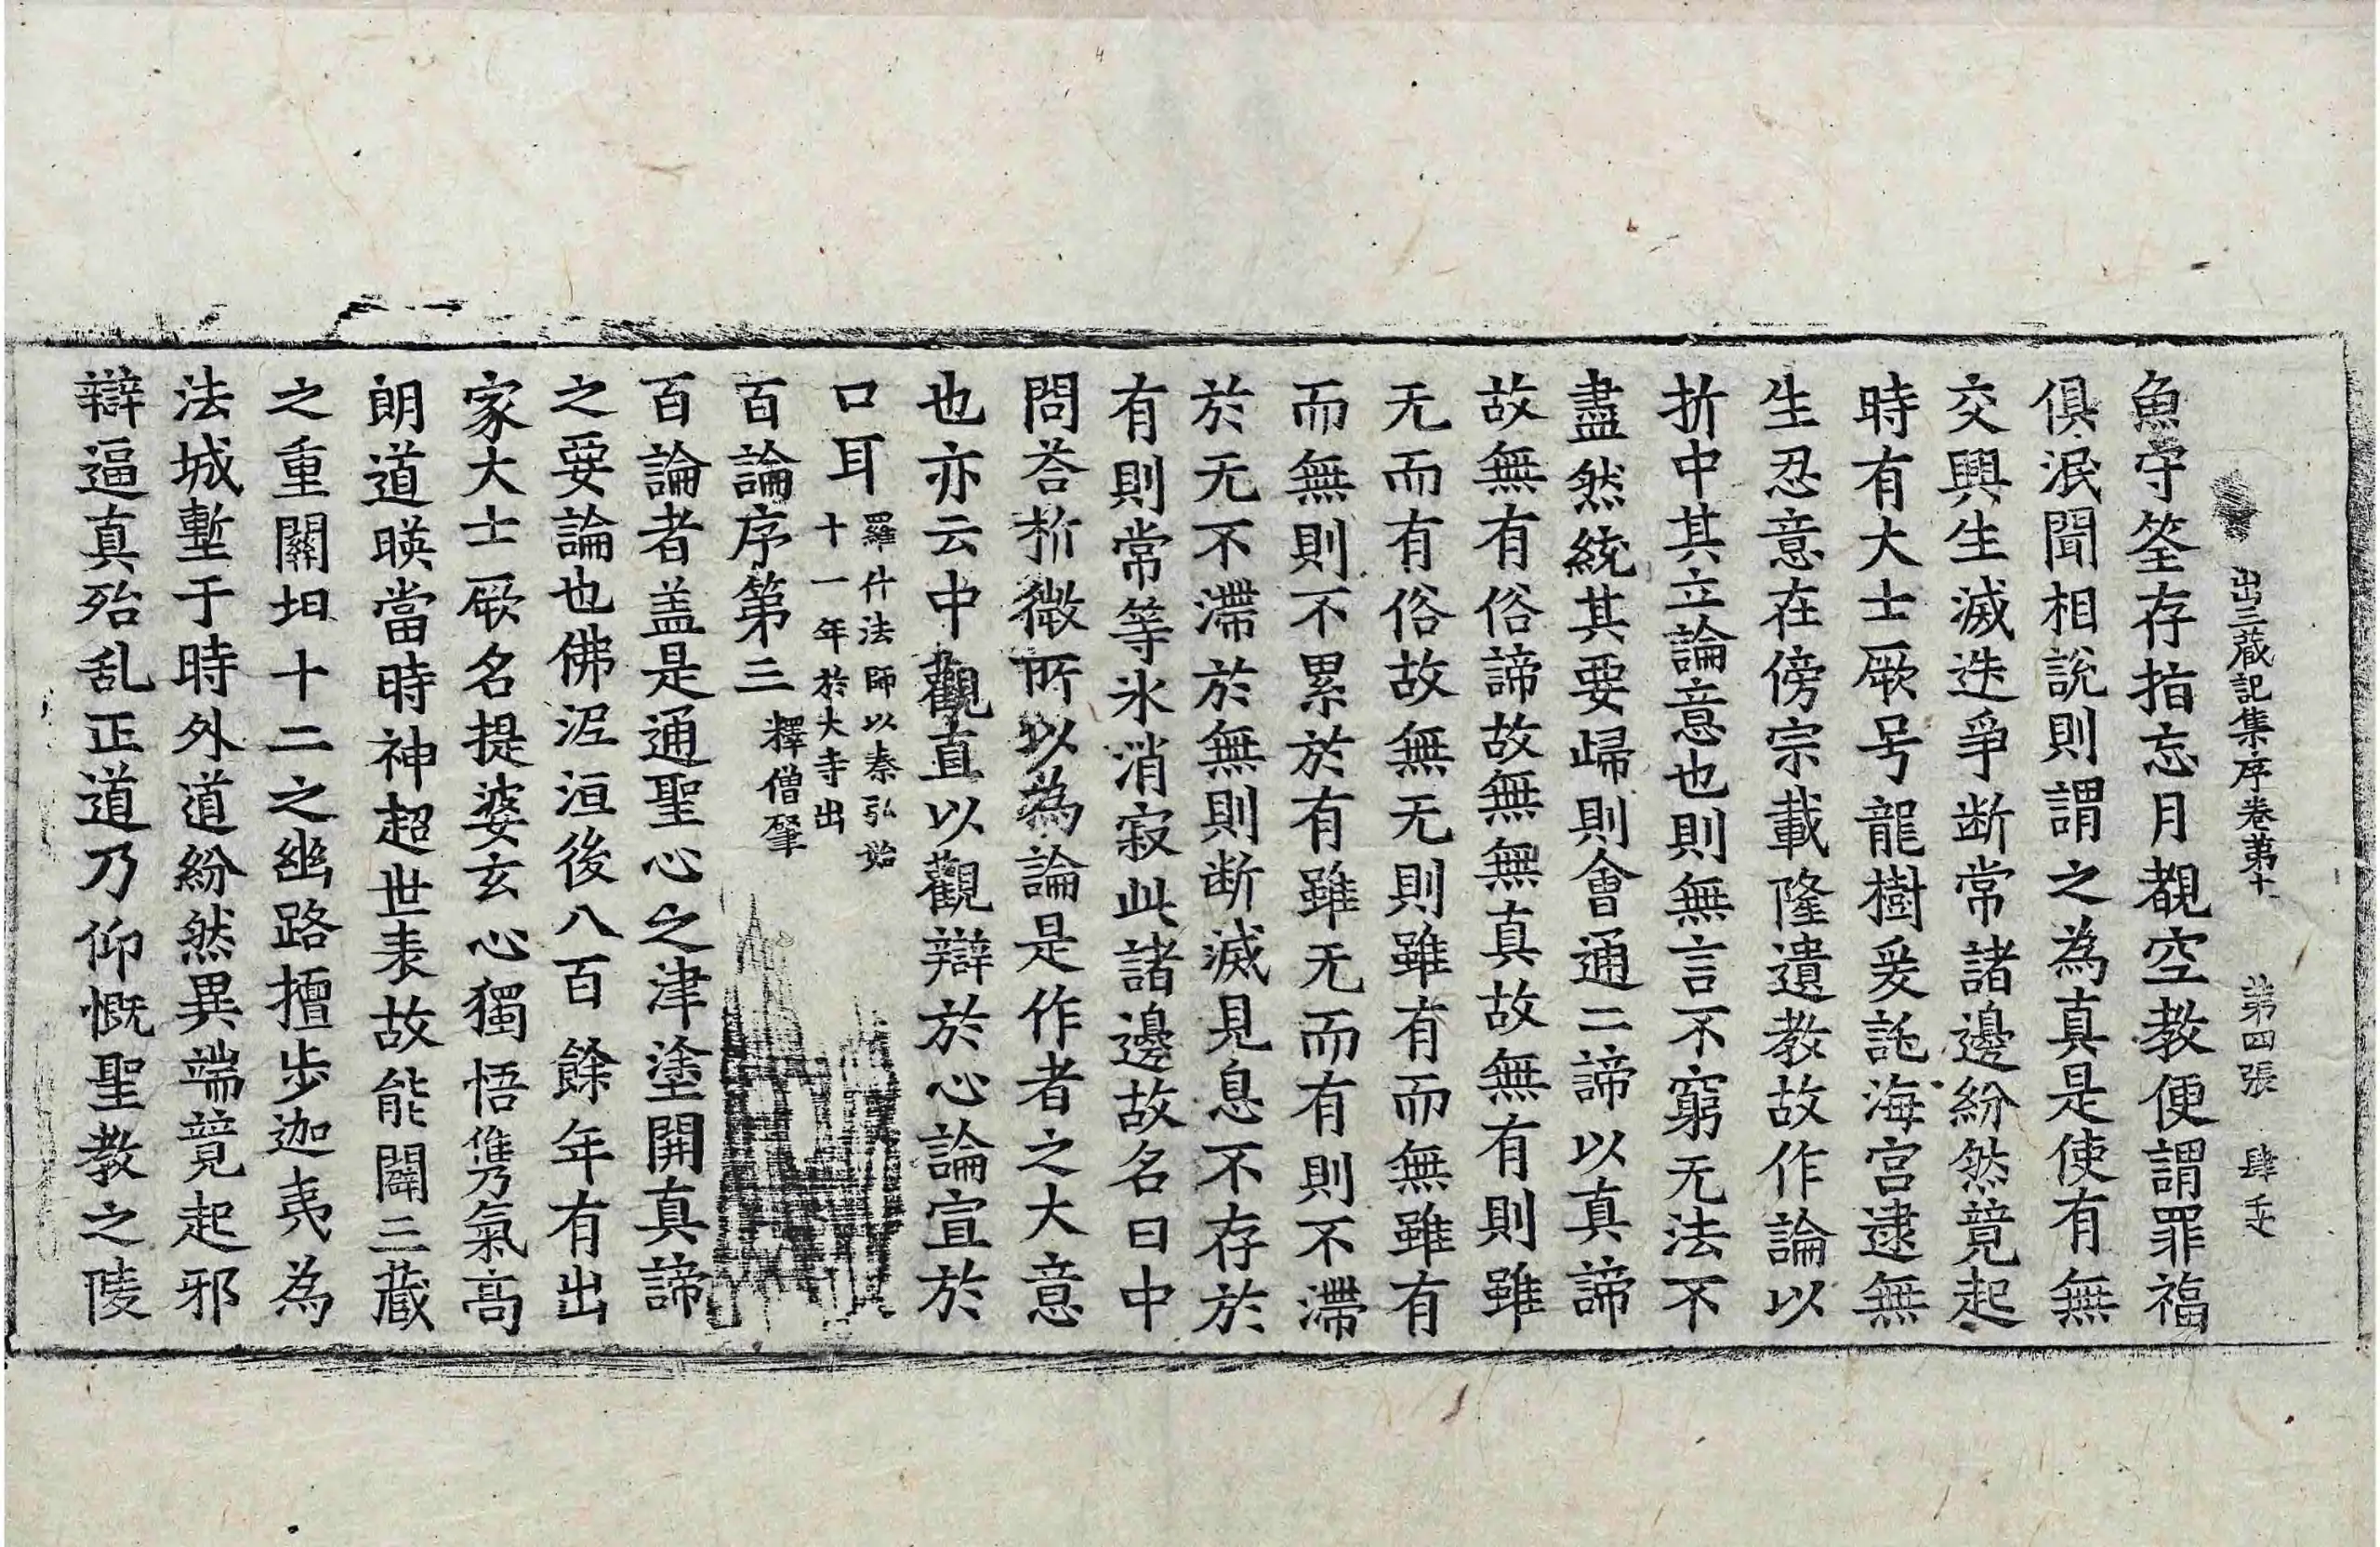 出三藏記集序卷第十一 第四張 肆
魚守筌存指忘月覩空教便謂罪福
俱泯聞相說則謂之為真是使有無
交興生滅迭爭断常諸邊紛然競起
時有大士厥号龍樹爰託海宮逮無
生忍意在傍宗載隆遺教故作論以
折中其立論意也則無言不窮无法不
盡然統其要歸則會通二諦以真諦
故無有俗諦故無無真故無有則雖
无而有俗故無无則雖有而無雖有
而無則不累於有雖无而有則不滯
於无不滯於無則断滅見息不存於
有則常等氷消寂此諸邊故名曰中
問荅析微所以為論是作者之大意
也亦云中觀直以觀辯於心論宣於
口耳 羅什法師以秦弘始
十一年於大寺出
百論序第三 釋僧肇
百論者盖是通聖心之津塗開真諦
之要論也佛泥洹後八百餘年有出
家大士厥名提婆玄心獨悟儁氣高
朗道暎當時神超世表故能闢三藏
之重關坦十二之幽路擅步迦夷為
法城塹于時外道紛然異端競起邪
辯逼真殆乱正道乃仰慨聖教之陵